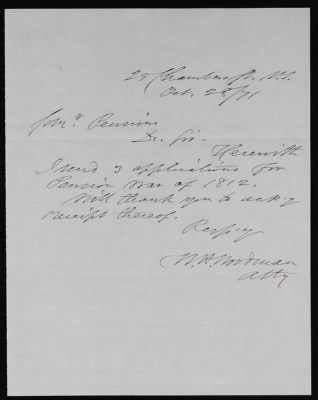 25 Chambers St. N.Y.
Oct. 28/71
Comr Pensions
Dr. Sir-
Herewith
I send 3 applications for
Pension War of 1812.
Will thank you to ackg
receipt thereof.
Respy
W. H. Woodman
Atty